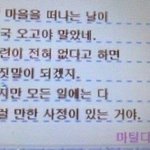 마을을 떠나는 날이
국 오고야 말았네.
련이 전혀 없다고 하면
짓말이 되겠지.
지만 모든 일에는 다
럴 만한 사정이 있는 거야.
마틸다